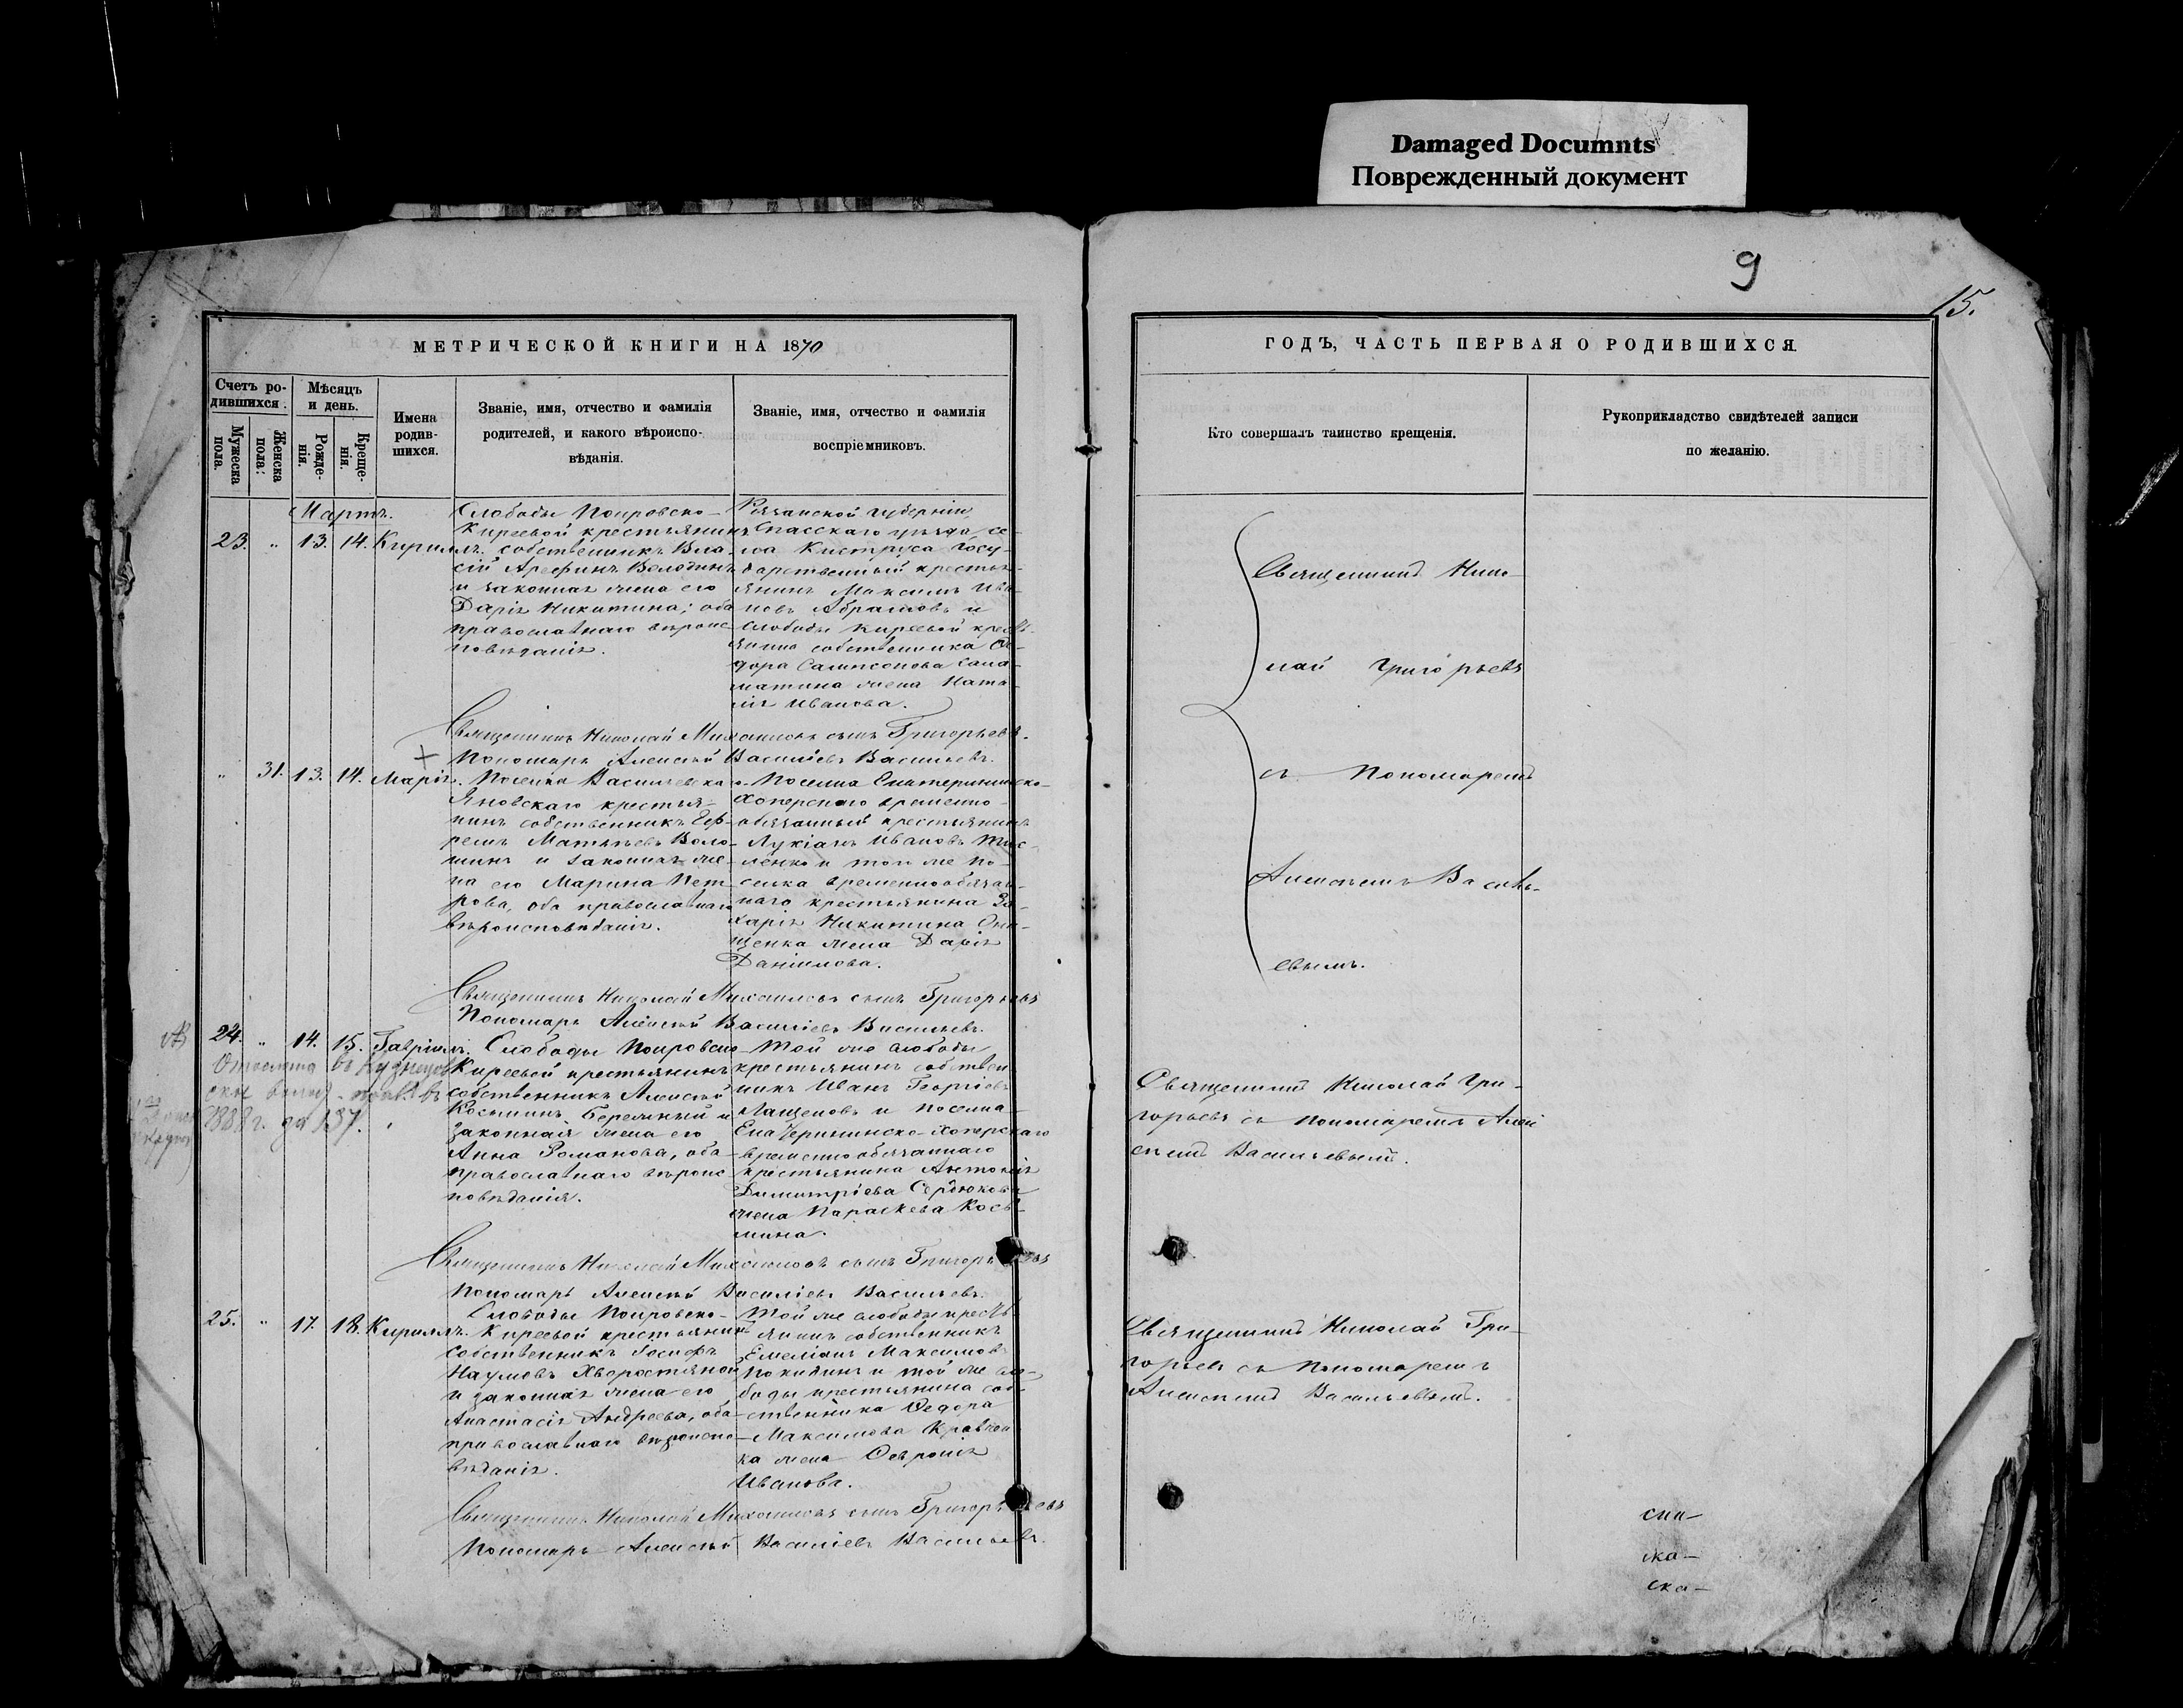 Damaged Documnts
Поврежденный документ
9
15.
МЕТРИЧЕСКОЙ КНИГИ НА 1870
Счетъ ро-
дившихся.
Мужеска
пола.
Женска
пола:
Мѣсяцъ
и день.
Рожде-
нія.
Креще-
нія.
Имена
родив-
шихся.
Званіе, имя, отчество и фамилія
родителей, и какого вѣроиспо-
вѣданія.
Званіе, имя, отчество и фамилія
воспріемниковъ.
Мартъ.
23. „ 13. 14. Кириллъ.
Слободы Покровско-
Киреевой крестьянинъ
собственникъ Вла-
сій Арефинъ Володинъ
и законная жена его
Дарія Никитина; оба
православнаго вѣроис-
повѣданія.
Рязанской губерніи,
Спасскаго уѣзда, се-
ла Киструса госу-
дарственный кресть-
янинъ Максимъ Ива-
новъ Абрамовъ и
слободы Киреевой кресть-
янина собственника Ѳе-
дора Сампсонова Сала-
матина жена Ната-
лія Иванова.
Священникъ Николай Михаиловъ сынъ Григорьевъ.
Пономарь Алексѣй Василіевъ Васильевъ.
„ 31. 13. 14. Марія.
Поселка Васильевка
Яновскаго крестья-
нинъ собственникъ Еф-
ремъ Матѳѣевъ Воло-
шинъ и законная же-
на его Марина Пет-
рова, оба православнаго
вѣроисповѣданія.
Поселка Екатерининско-
Хоперскаго временно-
обязанный крестьянинъ
Лукіанъ Ивановъ
и того же по-
селка временнообязан-
наго крестьянина За-
харія Никитина Они-
щенка жена Дарія
Даніилова.
Священникъ Николай Михаиловъ сынъ Григорьевъ
Пономарь Алексѣй Василіевъ Васильевъ.
24. „ 14. 15. Гавріилъ.
1888 г. за 137.
Слободы Покровско
Киреевой крестьянинъ
собственникъ Алексѣй
Косминъ Бережный и
законная жена его
Анна Романова, оба
православнаго вѣроис
повѣданія.
Той же слободы
крестьянинъ собствен
никъ Иванъ Георгіевъ
Лащеновъ и поселка
Екатерининско-Хоперскаго
временнообязаннаго
крестьянина Антонія
Димитріева Сердюкова
жена Параскева Кось-
мина.
Священникъ Николай Михаиловъ сынъ Григорьевъ
Пономарь Алексѣй Василіевъ Васильевъ.
25. „ 17. 18. Кириллъ.
Слободы Покровско-
Киреевой крестьянинъ
собственникъ Іосифъ
Наумовъ Хворостяной
и законная жена его
Анастасія Андреева, оба
православнаго вѣроиспо-
вѣданія.
Той же слободы кресть-
янинъ собственникъ
Емеліанъ Максимовъ
Покидинъ и той же сло-
боды крестьянина соб-
ственника Ѳедора
Максимова Кравчен
ка жена Ѳевронія
Иванова.
Священникъ Николай Михаиловъ сынъ Григорьевъ
Пономарь Алексѣй Василіевъ Васильевъ.
ГОДЪ, ЧАСТЬ ПЕРВАЯ О РОДИВШИХСЯ.
Кто совершалъ таинство крещенія.
Рукоприкладство свидѣтелей записи
по желанію.
Священникъ Нико-
лай Григорьевъ
съ Пономаремъ
Алексѣемъ Василь-
евымъ.
Священникъ Николай Гри-
горьевъ съ пономаремъ Алек
сѣемъ Васильевымъ.
Священникъ Николай Гри-
горьевъ съ пономаремъ
Алексѣемъ Васильевымъ.